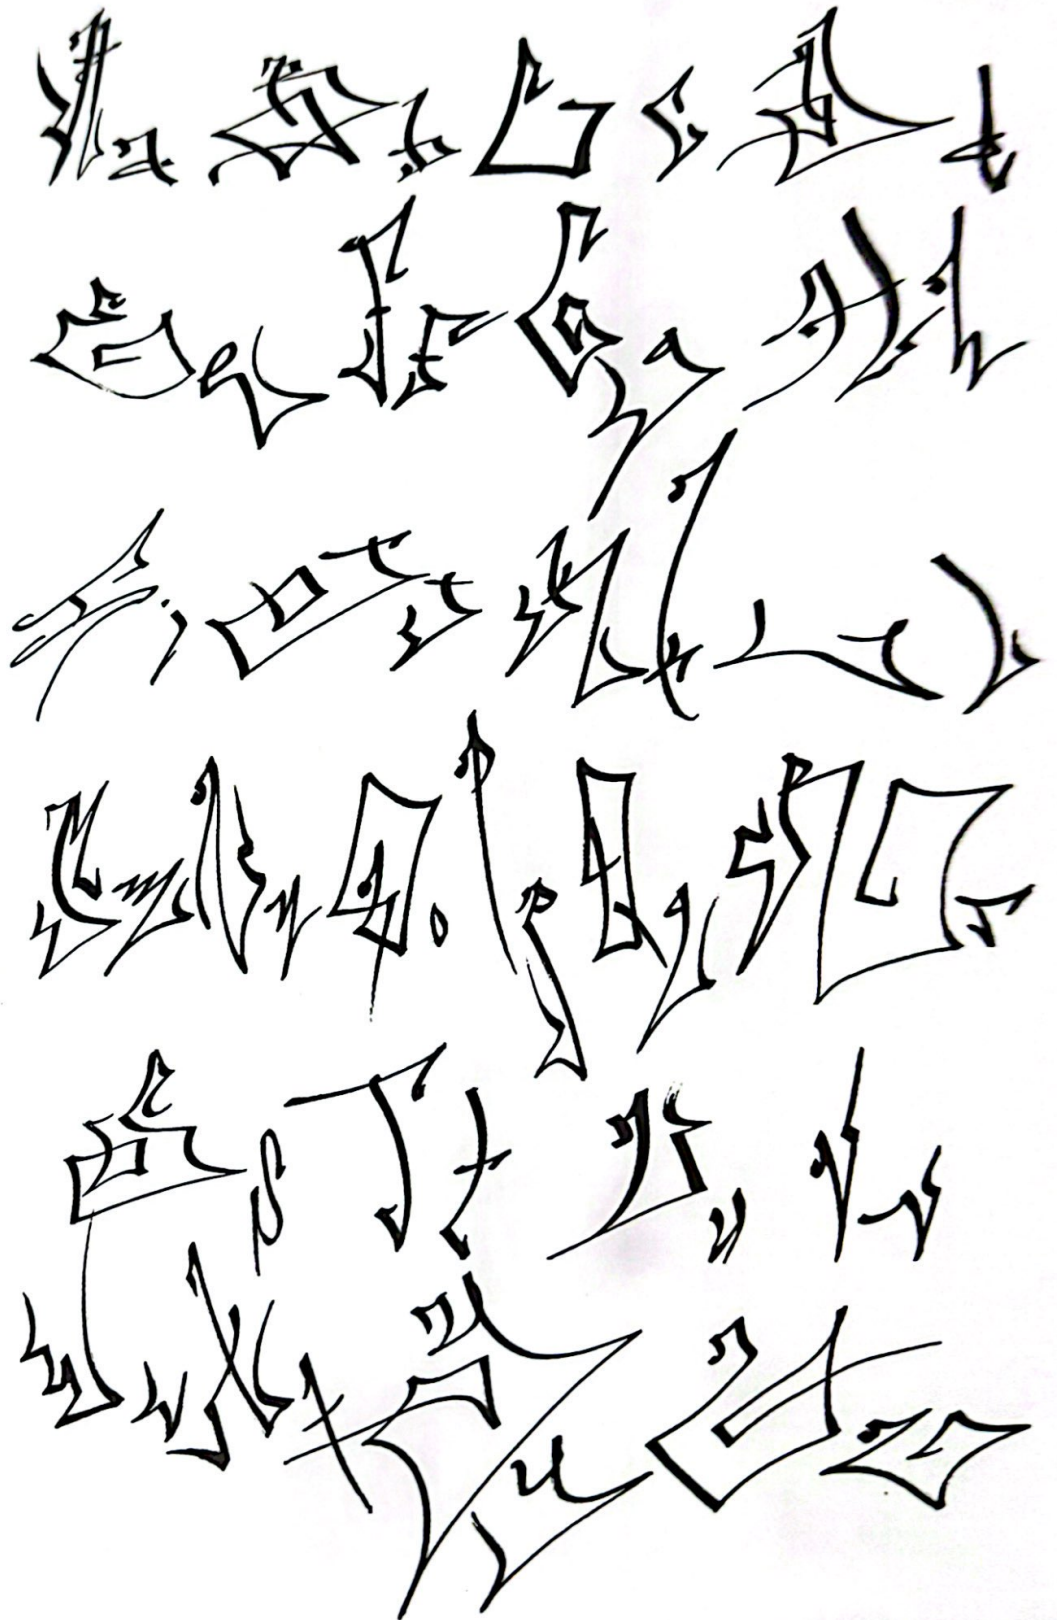 A a B b C c D d
E e F f G g H h
I i J j K k L l
M m N n O o P p Q q R r
S s T t U u V v
W w X x Y y Z z